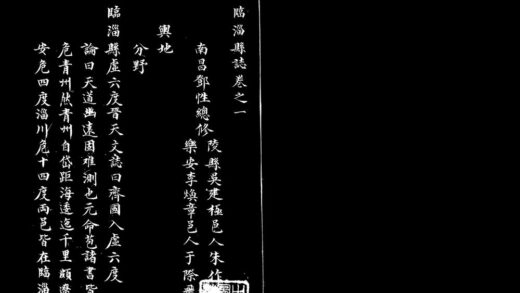 臨淄縣誌卷之一
南昌鄧性總修
陵縣吳建極邑人朱作
樂安李煥章邑人于際飛
輿地
分野
臨淄縣虛六度晉天文誌曰齊國入虛六度
論曰天道幽遠固難測也元命苞諸書皆
危青州然青州自岱距海逶迤千里頗
安危四度淄川危十四度兩邑皆在臨淄